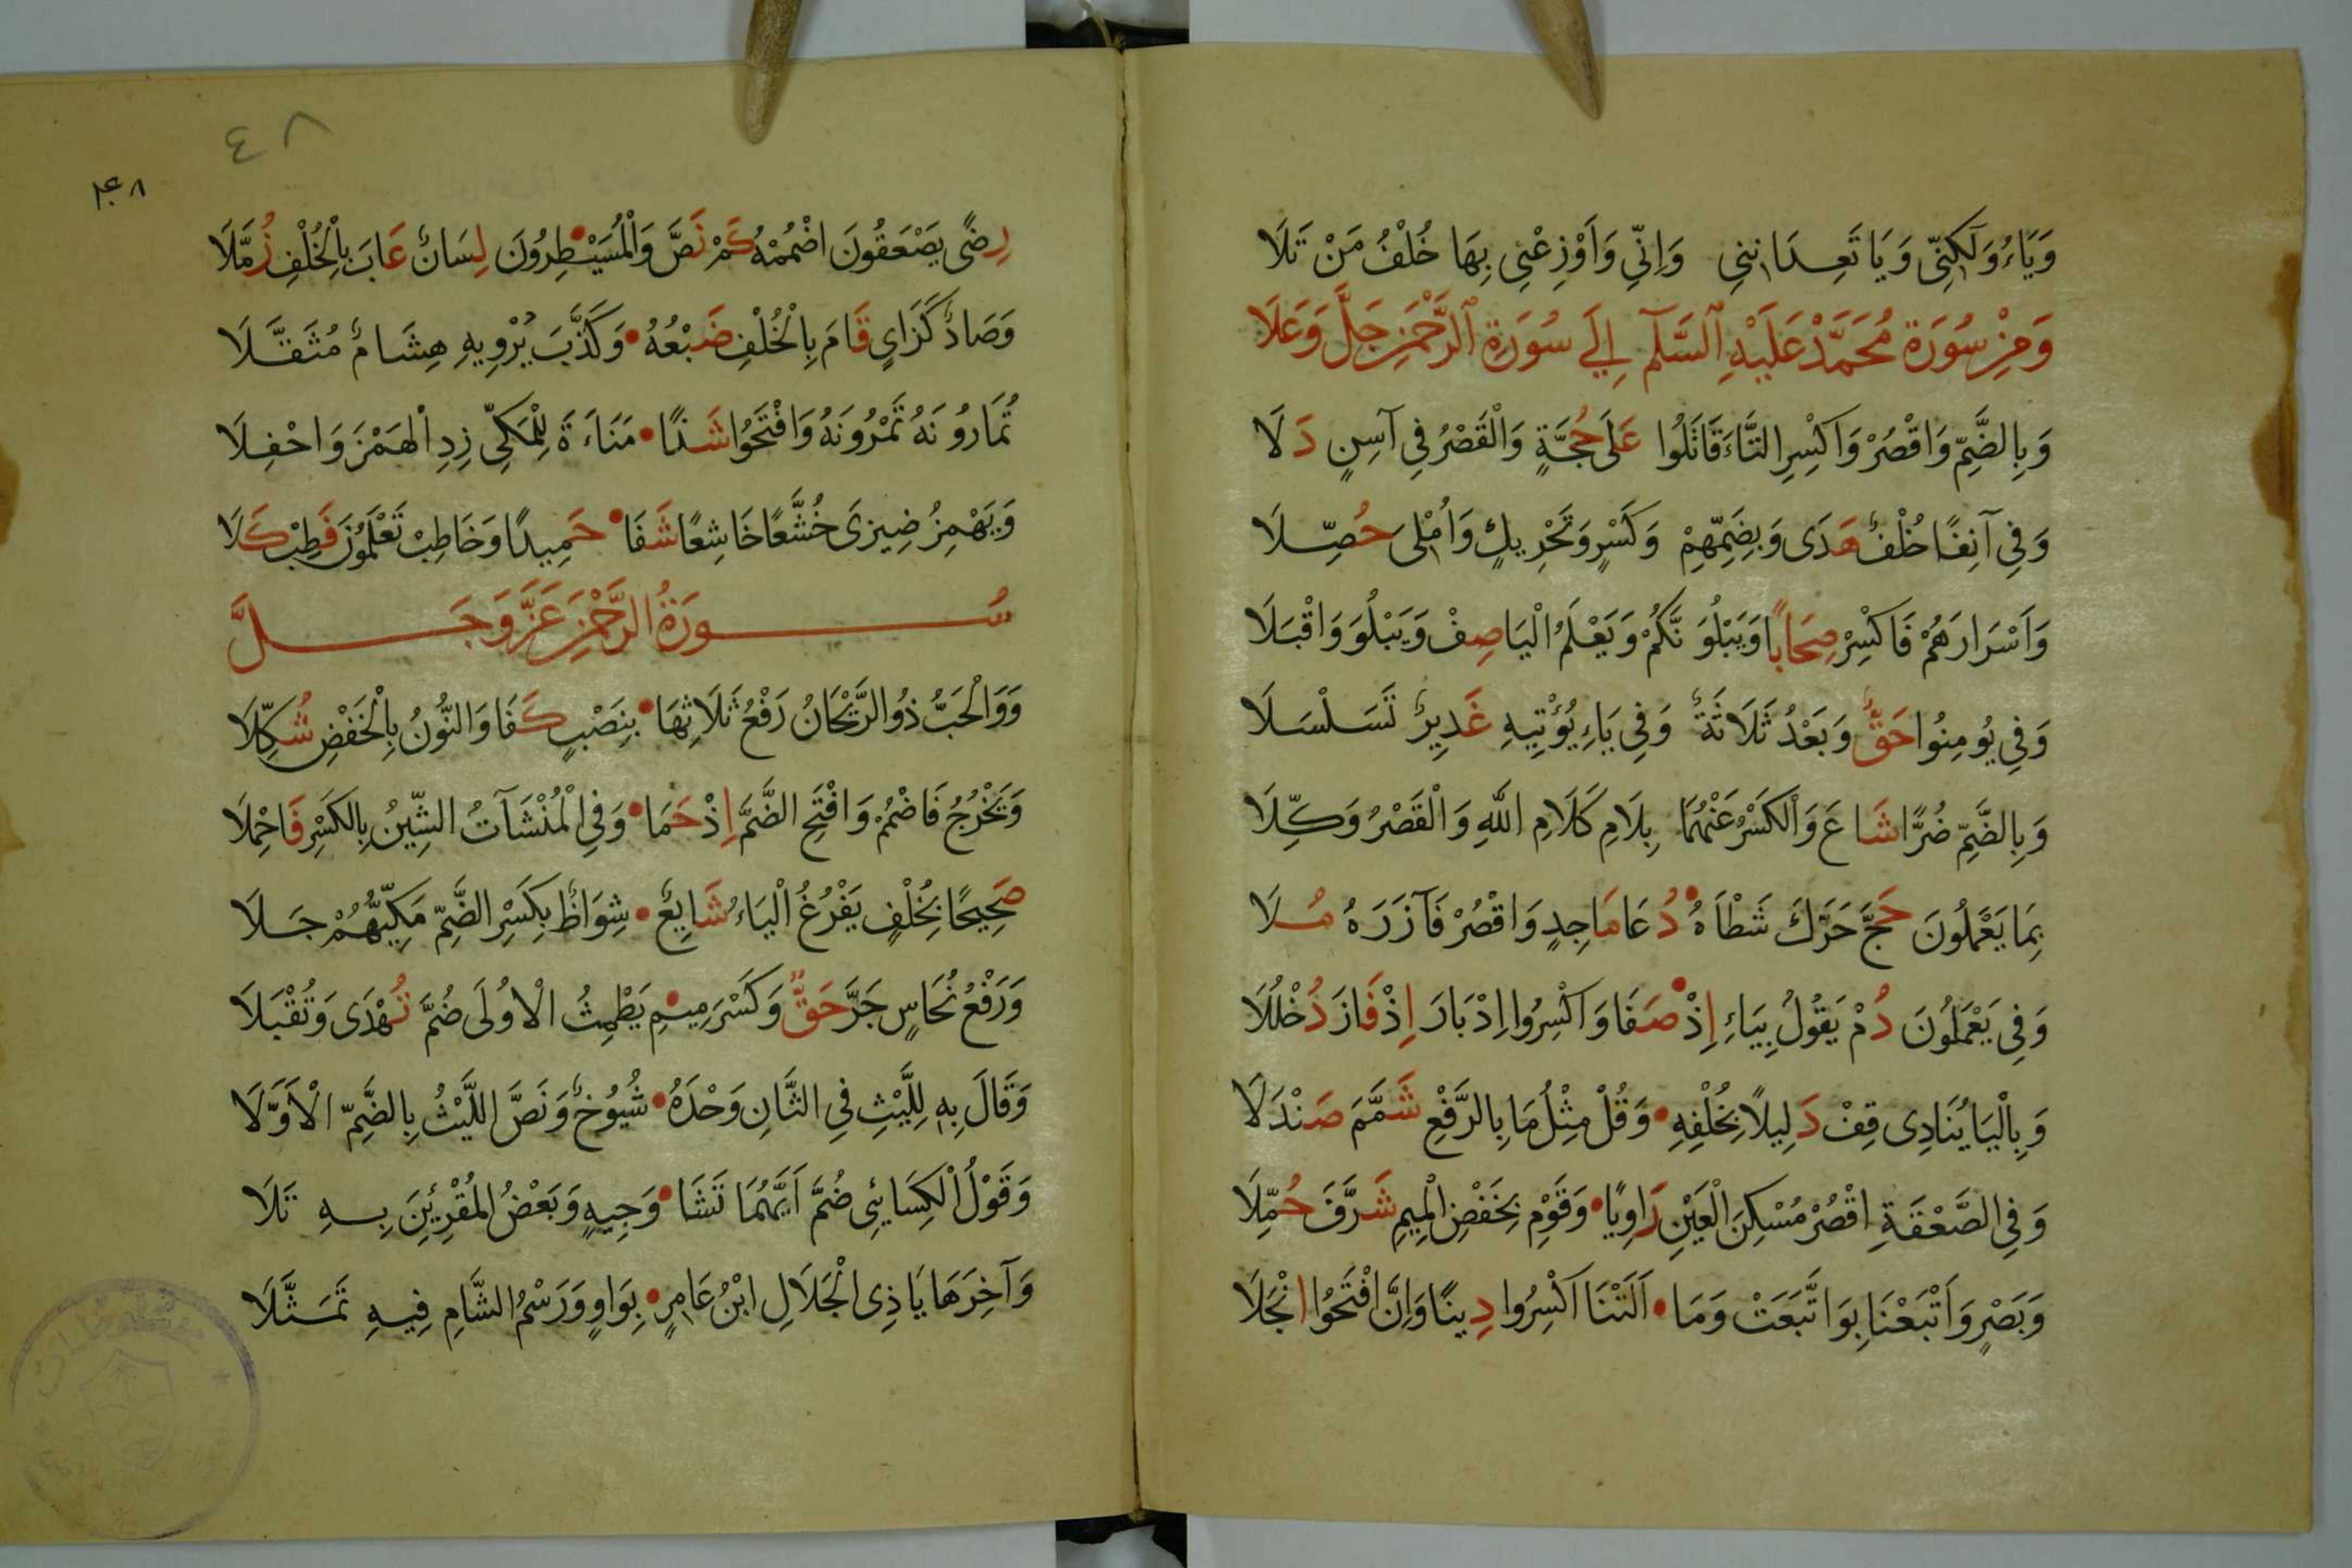 وَيَاءُ وَلَكِنِّي وَيَا تَعِدَانِنِي وَإِنِّي وَأَوْزِعْنِي بِهَا خُلْفُ مَنْ تَلَا
وَمِنْ سُورَةِ مُحَمَّدْ عَلَيْهِ السَّلَم إِلَى سُورَةِ الرَّحْمَنِ جَلَّ وَعَلَا
وَبِالضَّمِّ وَاقْصُرْ وَاكْسِرِ التَّاءَ قَاتَلُوا عَلَى حُجَّةٍ وَالْقَصْرُ فِي آسِنٍ دَلَا
وَفِي آنِفًا خُلْفٌ هَدَى وَبِضَمِّهِمْ وَكَسْرٍ وَتَحْرِيكٍ وَأُمْلِيَ حُصِّلَا
وَأَسْرَارَهُمْ فَاكْسِرْ صِحَابًا وَيَبْلُوَنَّكُمْ وَيَعْلَمُ الْيَا صِفْ وَيَبْلُوَ وَاقْبَلَا
وَفِي يُومِنُوا حَقٌّ وَبَعْدُ ثَلَاثَةٌ وَفِي يَاءِ يُؤْتِيهِ غَدِيرٌ تَسَلْسَلَا
وَبِالضَّمِّ ضُرًّا شَاعَ وَالْكَسْرُ عَنْهُمَا بِلَامِ كَلَامِ اللهِ وَالْقَصْرُ وَكِّلَا
بِمَا يَعْمَلُونَ حَجَّ حَرَّكَ شَطْأَهُ • دُعَا مَاجِدٍ وَاقْصُرْ فَآزَرَهُ مُلَا
وَفِي يَعْمَلُونَ دُمْ يَقُولُ بِيَاءِ إِذْ • صَفَا وَاكْسِرُوا إِدْبَارَ إِذْ فَازَ دُخْلُلَا
وَبِالْيَا يُنَادِي قِفْ دَلِيلًا بِخُلْفِهِ • وَقُلْ مِثْلُ مَا بِالرَّفْعِ شَمَّمَ صَنْدَلَا
وَفِي الصَّعْقَةِ اقْصُرْ مُسْكِنَ الْعَيْنِ رَاوِيًا • وَقَوْمِ بِخَفْضِ الْمِيمِ شَرَّفَ حُمَّلَا
وَبَصْرٍ وَأَتْبَعْنَا بِوَاتَّبَعَتْ وَمَا • أَلَتْنَا اكْسِرُوا دِينًا وَإِنَّ افْتَحُوا انْجَلَا
٤٨
رِضًى يَصْعَقُونَ اضْمُمْهُ كَمْ نَصَّ وَالْمُسَيْطِرُونَ لِسَانٌ عَابَ بِالْخُلْفِ زُمَّلَا
وَصَادٌ كَزَايٍ قَامَ بِالْخُلْفِ ضَبْعُهُ • وَكَذَّبَ يَرْوِيهِ هِشَامٌ مُثَقَّلَا
تُمَارُونَهُ تَمْرُونَهُ وَافْتَحُوا شَذًا • مَنَاءَةَ لِلْمَكِّي زِدِ الْهَمْزَ وَاحْفِلَا
وَيَهْمِزُ ضِيزَى خُشَّعًا خَاشِعًا شَفَا • حَمِيدًا وَخَاطِبْ تَعْلَمُونَ فَطِبْ كَلَا
سُورَةُ الرَّحْمَنِ عَزَّ وَجَلَّ
وَوَالْحَبُّ ذُو الرَّيْحَانُ رَفْعُ ثَلَاثِهَا • بِنَصْبٍ كَفَا وَالنُّونُ بِالْخَفْضِ شُكِّلَا
وَتَخْرُجُ فَاضْمُمْ وَافْتَحِ الضَّمَّ إِذْ حَمَا • وَفِي الْمُنْشَآتُ الشِّينُ بِالْكَسْرِ فَاحْمِلَا
صَحِيحًا بِخُلْفٍ يَفْرُغُ الْيَاءُ شَايِعٌ • شِوَاظٌ بِكَسْرِ الضَّمِّ مَكِّيُّهُمْ جَلَا
وَرَفْعُ نُحَاسٍ جَرَّ حَقٌّ وَكَسْرَ مِيمِ يَطْمِثُ الْاُولَى ضُمَّ تُهْدَى وَتُقْبَلَا
وَقَالَ بِهِ لِلَّيْثِ فِي الثَّانِ وَحْدَهُ • شُيُوخٌ وَنَصَّ اللَّيْثُ بِالضَّمِّ الْاَوَّلَا
وَقَوْلُ الْكِسَائِي ضُمَّ أَيَّهُمَا تَشَا • وَجِيهٍ وَبَعْضُ الْمُقْرِئِينَ بِهِ تَلَا
وَآخِرَهَا يَا ذِي الْجَلَالِ ابْنُ عَامِرٍ • بِوَاوٍ وَرَسْمُ الشَّامِ فِيهِ تَمَثَّلَا